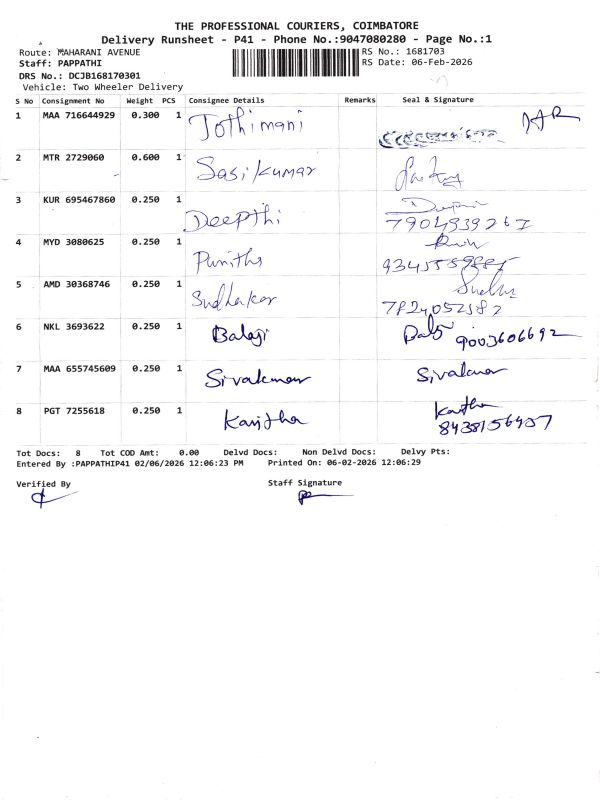 THE PROFESSIONAL COURIERS, COIMBATORE
Delivery Runsheet - P41 - Phone No.:9047080280 - Page No.:1
Route: MAHARANI AVENUE RS No.: 1681703
Staff: PAPPATHI RS Date: 06-Feb-2026
DRS No.: DCJB168170301
Vehicle: Two Wheeler Delivery
S No Consignment No Weight PCS Consignee Details Remarks Seal & Signature
1 MAA 716644929 0.300 1 Jothimani
2 MTR 2729060 0.600 1 Sasikumar
3 KUR 695467860 0.250 1 Deepthi Deepthi
7904939267
4 MYD 3080625 0.250 1 Punitha
5 AMD 30368746 0.250 1 Sudhakar
7824052382
6 NKL 3693622 0.250 1 Balaji 9003606692
7 MAA 655745609 0.250 1 Sivakumar Sivakumar
8 PGT 7255618 0.250 1 Kavitha Kavitha
8438156457
Tot Docs: 8 Tot COD Amt: 0.00 Delvd Docs: Non Delvd Docs: Delvy Pts:
Entered By :PAPPATHIP41 02/06/2026 12:06:23 PM Printed On: 06-02-2026 12:06:29
Verified By Staff Signature